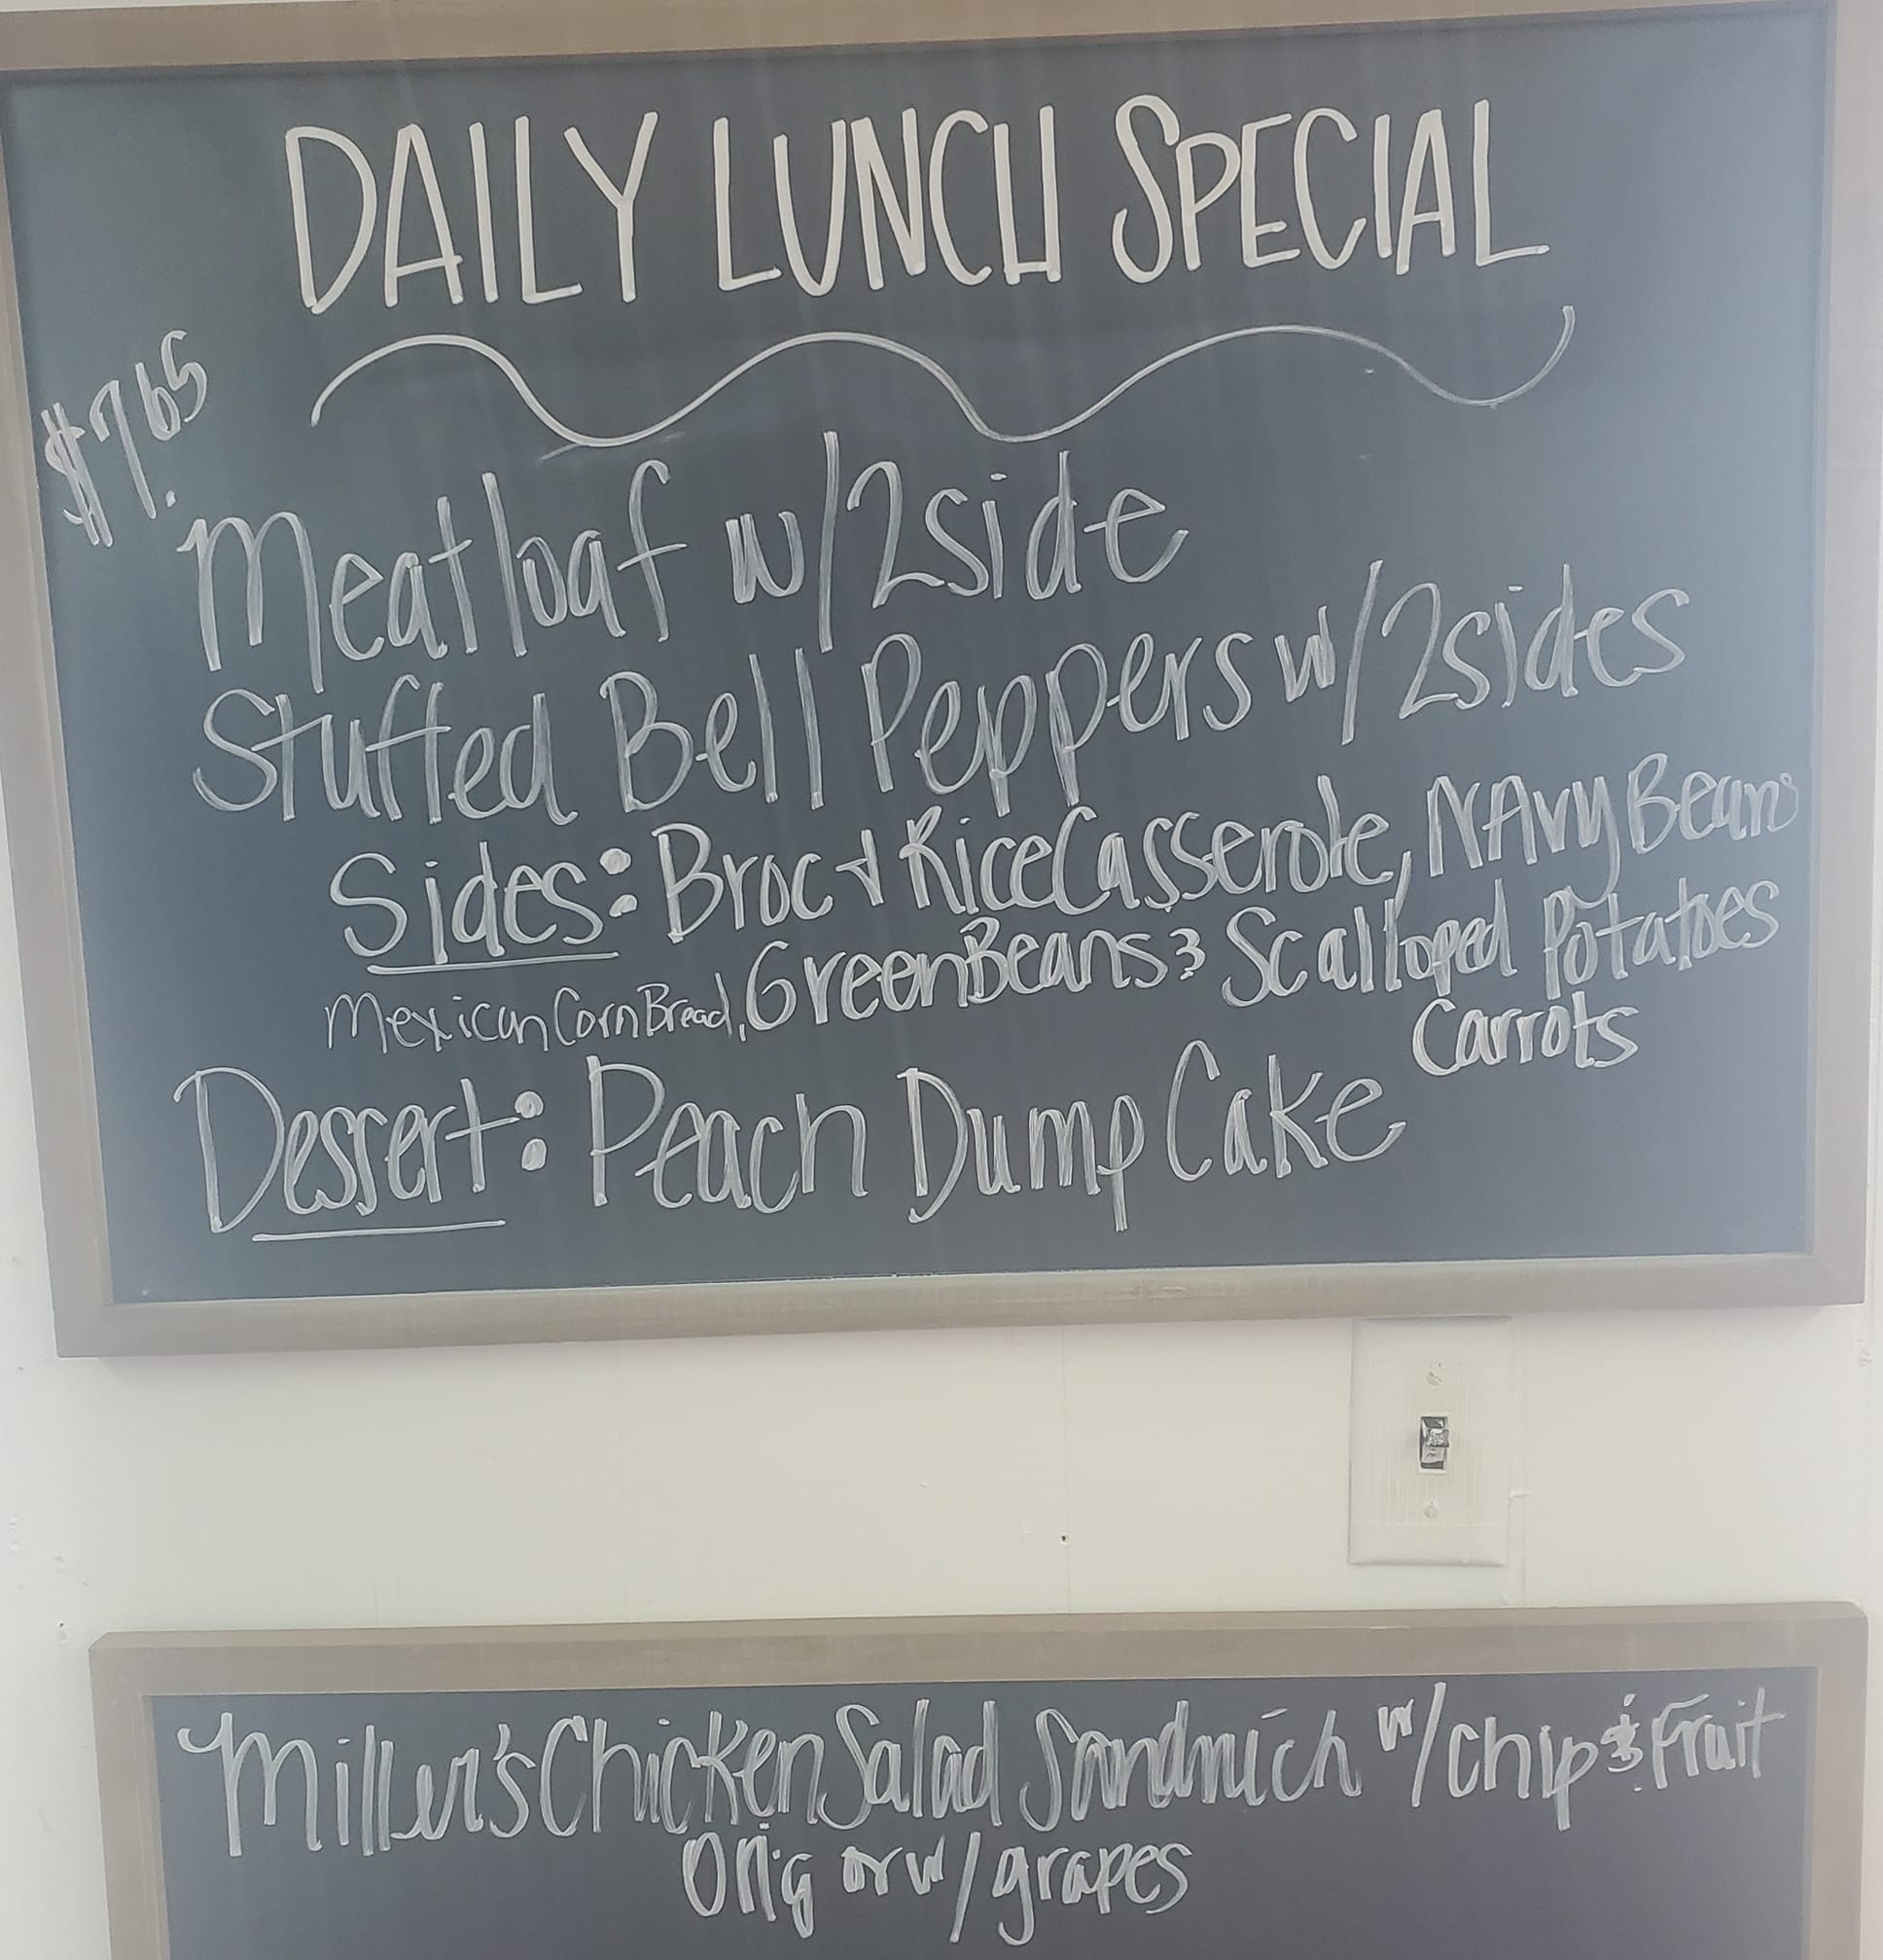 DAILY LUNCH SPECIAL
$7.65
Meatloaf w/2side
Stuffed Bell Peppers w/2sides
Sides: Broc & Rice Casserole, NAvy Beans
Mexican Corn Bread, Green Beans & Scalloped Potatoes
Carrots
Dessert: Peach Dump Cake
Miller's Chicken Salad Sandwich w/chip & Fruit
Orig or w/grapes